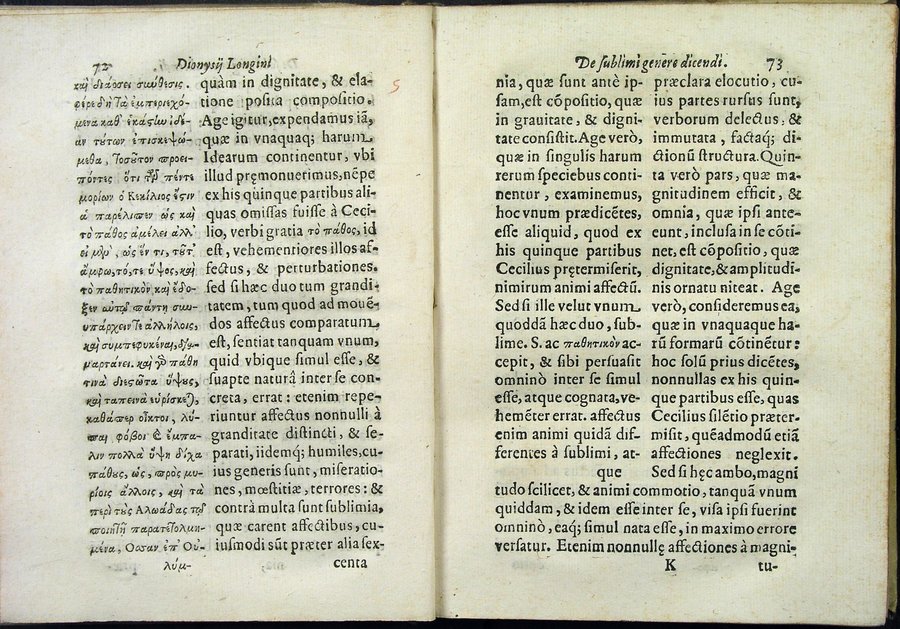 72 Dionysij Longini
καὶ διάρσει σύνθεσις.
φέρε δὴ τὰ ἐμπεριεχό-
μενα καθ' ἑκάστην ἰδέ-
αν τούτων ἐπισκεψώ-
μεθα, τοσοῦτον προει-
πόντες ὅτι τῶν πέντε
μορίων ὁ Κεκίλιος ἔστιν
ἃ παρέλιπεν ὡς καὶ
τὸ πάθος ἀμέλει ἀλλ'
εἰ μὲν, ὡς ἕν τι, ταῦτ'
ἄμφω, τό, τε ὕψος, καὶ
τὸ παθητικὸν, καὶ ἔδο-
ξεν αὐτῷ πάντη συν-
υπάρχειν τε ἀλλήλοις,
καὶ συμπεφυκέναι, δια-
μαρτάνει. καὶ γὰρ πάθη
τινὰ διεστῶτα ὕψους,
καὶ ταπεινὰ εὑρίσκεται,
καθάπερ οἶκτοι, λύ-
παι φόβοι καὶ ἔμπα-
λιν πολλὰ ὕψη δίχα
πάθους, ὡς, πρὸς μυ-
ρίοις ἄλλοις, καὶ τὰ
περὶ τοὺς Ἀλωάδας τῷ
ποιητῇ παρατετολμη-
μένα, Οσσαν ἐπ' Οὐ-
λύμ-
quàm in dignitate, & ela-
tione posita compositio.
Age igitur, expendamus iã,
quæ in vnaquaq; harum
Idearum continentur, vbi
illud pręmonuerimus, nẽpe
ex his quinque partibus ali-
quas omissas fuisse à Ceci-
lio, verbi gratia τὸ πάθος, id
est, vehementiores illos af-
fectus, & perturbationes.
sed si hæc duo tum grandi-
tatem, tum quod ad mouẽ-
dos affectus comparatum
est, sentiat tanquam vnum,
quid vbique simul esse, &
suapte naturâ inter se con-
creta, errat: etenim repe-
riuntur affectus nonnulli à
granditate distincti, & se-
parati, iidemq; humiles, cu-
ius generis sunt, miseratio-
nes, mœstitiæ, terrores: &
contrà multa sunt sublimia,
quæ carent affectibus, cu-
iusmodi sũt præter alia sex-
centa
De sublimi genere dicendi. 73
nia, quæ sunt antè ip-
sam, est cõpositio, quæ
in grauitate, & digni-
tate consistit. Age verò,
quæ in singulis harum
rerum speciebus conti-
nentur, examinemus,
hoc vnum prædicẽtes,
esse aliquid, quod ex
his quinque partibus
Cecilius prętermiserit,
nimirum animi affectũ.
Sed si ille velut vnum
quoddã hæc duo, sub-
lime. S. ac παθητικὸν ac-
cepit, & sibi persuasit
omninò inter se simul
esse, atque cognata, ve-
hemẽter errat. affectus
enim animi quidã dif-
ferentes à sublimi, at-
que
præclara elocutio, cu-
ius partes rursus sunt,
verborum delectus, &
immutata, factaq; di-
ctionũ structura. Quin-
ta verò pars, quæ ma-
gnitudinem efficit, &
omnia, quæ ipsi ante-
eunt, inclusa in se cõti-
net, est cõpositio, quæ
dignitate, & amplitudi-
nis ornatu niteat. Age
verò, consideremus ea,
quæ in vnaquaque ha-
rũ formarũ cõtinẽtur:
hoc solũ prius dicẽtes,
nonnullas ex his quin-
que partibus esse, quas
Cecilius silẽtio præter-
misit, quẽadmodũ etiã
affectiones neglexit.
Sed si hęc ambo, magni
tudo scilicet, & animi commotio, tanquã vnum
quiddam, & idem esse inter se, visa ipsi fuerint
omninò, eaq; simul nata esse, in maximo errore
versatur. Etenim nonnullę affectiones à magni-
K tu-